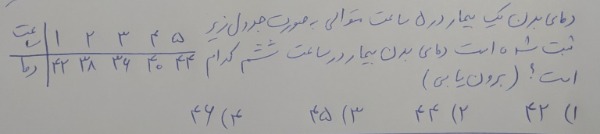 دمای بدن یک بیمار در ۵ ساعت متوالی به صورت جدول زیر
ثبت شده است دمای بدن بیمار در ساعت ششم کدام
است؟ (برون یابی)
ساعت ۱ ۲ ۳ ۴ ۵
دما ۴۲ ۳۸ ۳۶ ۴۰ ۴۴
۱) ۴۲ ۲) ۴۴ ۳) ۴۵ ۴) ۴۶